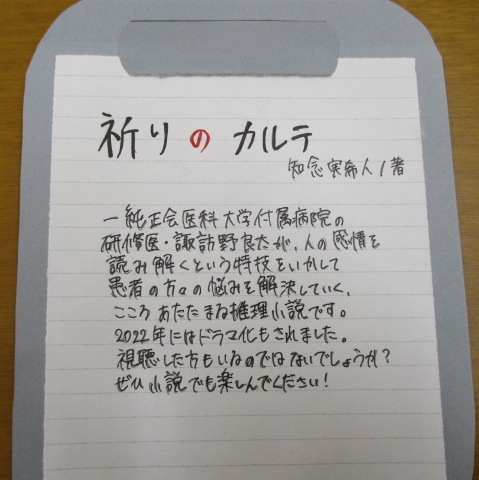 祈りのカルテ
知念実希人/著
一純正会医科大学付属病院の
研修医・諏訪野良太が、人の感情を
読み解くという特技をいかして
患者の方々の悩みを解決していく、
こころあたたまる推理小説です。
2022年にはドラマ化もされました。
視聴した方もいるのではないでしょうか?
ぜひ小説でも楽しんでください!